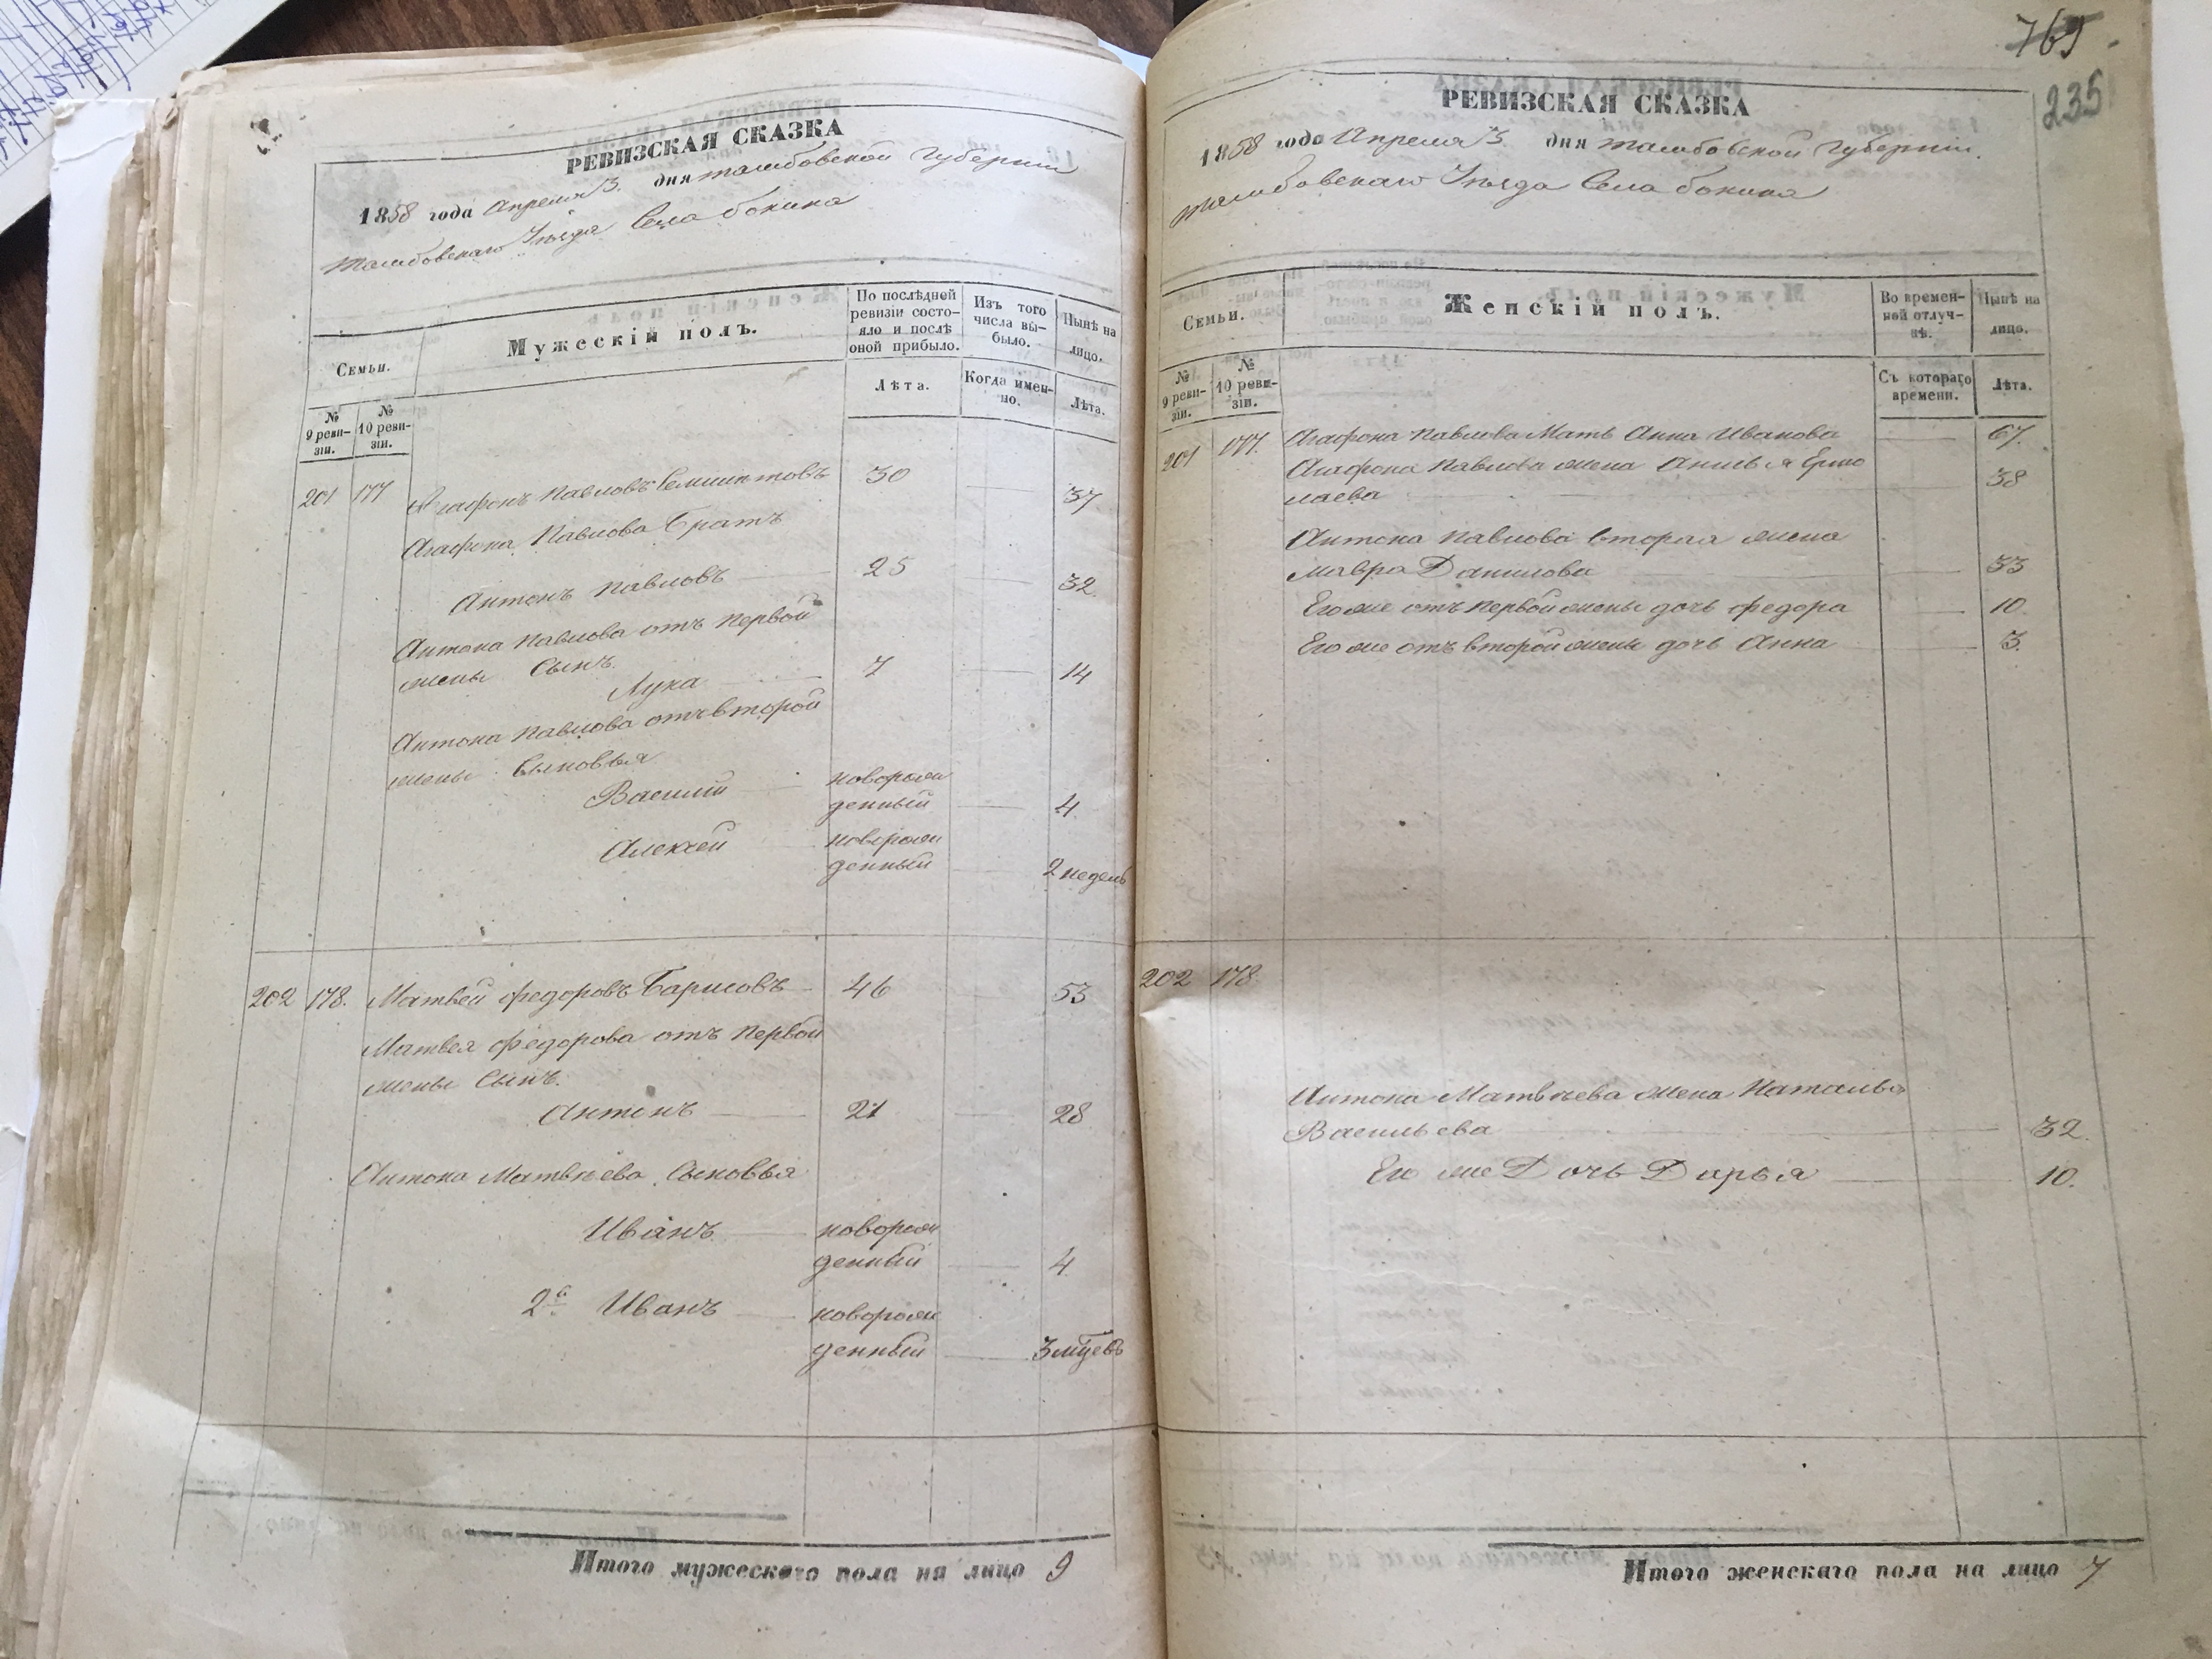 РЕВИЗСКАЯ СКАЗКА
1858 года Апреля 3 дня тамбовской Губернии
тамбовскаго Уѣзда Села бокина
Семьи.
Мужескій полъ.
По послѣдней ревизіи состо-
яло и послѣ оной прибыло.
Изъ того числа вы-
было.
Нынѣ на лицо.
№ 9 реви-
зіи.
№ 10 реви-
зіи.
Лѣта.
Когда имен-
но.
Лѣта.
201 177 Агафонъ Павловъ 30 37.
Агафона Павлова Братъ
Антонъ Павловъ 25 32.
Антона Павлова отъ Первой
жены Сынъ.
Лука 7 14
Антона Павлова отъ второй
жены Сыновья
Василий новорож
денный 4.
Алексей новорож
денный 2 недель
202 178. Матвей федоровъ 46 53
Матвея федорова отъ Первой
жены Сынъ.
Антонъ 21 28
Антона Матвѣева Сыновья
Иванъ новорож
денный 4.
2й Иванъ новорож
денный 3 мцевъ
Итого мужескаго пола на лицо 9
765
235
РЕВИЗСКАЯ СКАЗКА
1858 года Апреля 3 дня тамбовской Губернии.
тамбовскаго Уѣзда Села бокина
Семьи.
Женскій полъ.
Во времен-
ной отлуч-
кѣ.
Нынѣ на лицо.
№ 9 реви-
зіи.
№ 10 реви-
зіи.
Съ котораго времени.
Лѣта.
201 177. Агафона Павлова Мать Анна Иванова 67.
Агафона Павлова жена Анисья Ермо
лаева 38
Антона Павлова вторая жена
Мавра Данилова 33
Его же отъ Первой жены дочь федора 10.
Его же отъ второй жены дочь Анна 3.
202 178.
Антона Матвѣева жена Наталья
Васильева 32.
Его же Дочь Дарья 10.
Итого женскаго пола на лицо 7